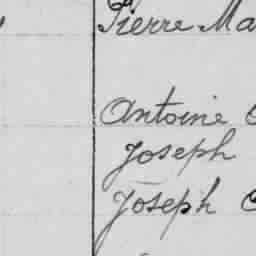 Pierre Ma
Antoine
Joseph
Joseph